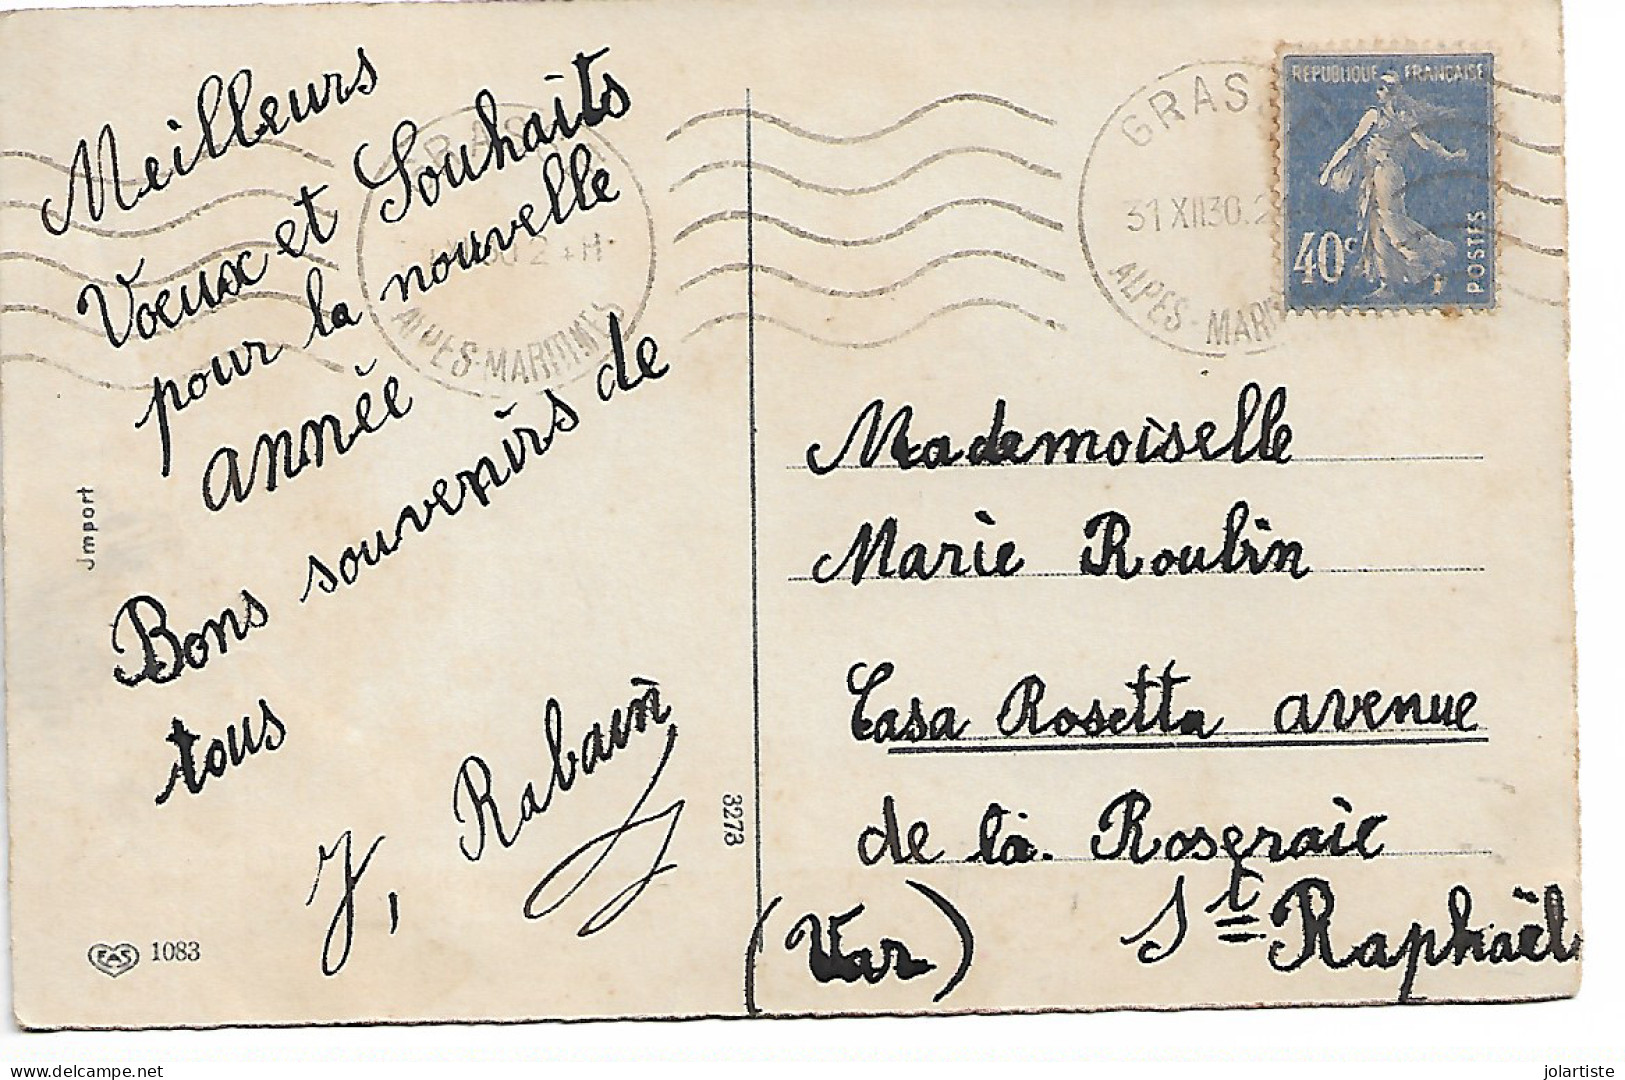 Meilleurs
Voeux et Souhaits
pour la nouvelle
année
Bons souvenirs de
tous
Y, Rabauin
Jmport
EAS 1083
3273
GRASSE
ALPES-MARITIMES
GRAS
31 XII 30.2
ALPES-MARI
REPUBLIQUE FRANCAISE
40c
POSTES
Mademoiselle
Marie Roubin
Casa Rosetta avenue
de la Roseraie
St Raphaël
(Var)
jolartiste